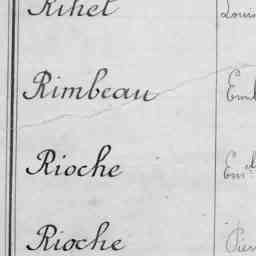 Rihet Louis
Rimbeau Em
Rioche Em.el
Rioche Pier